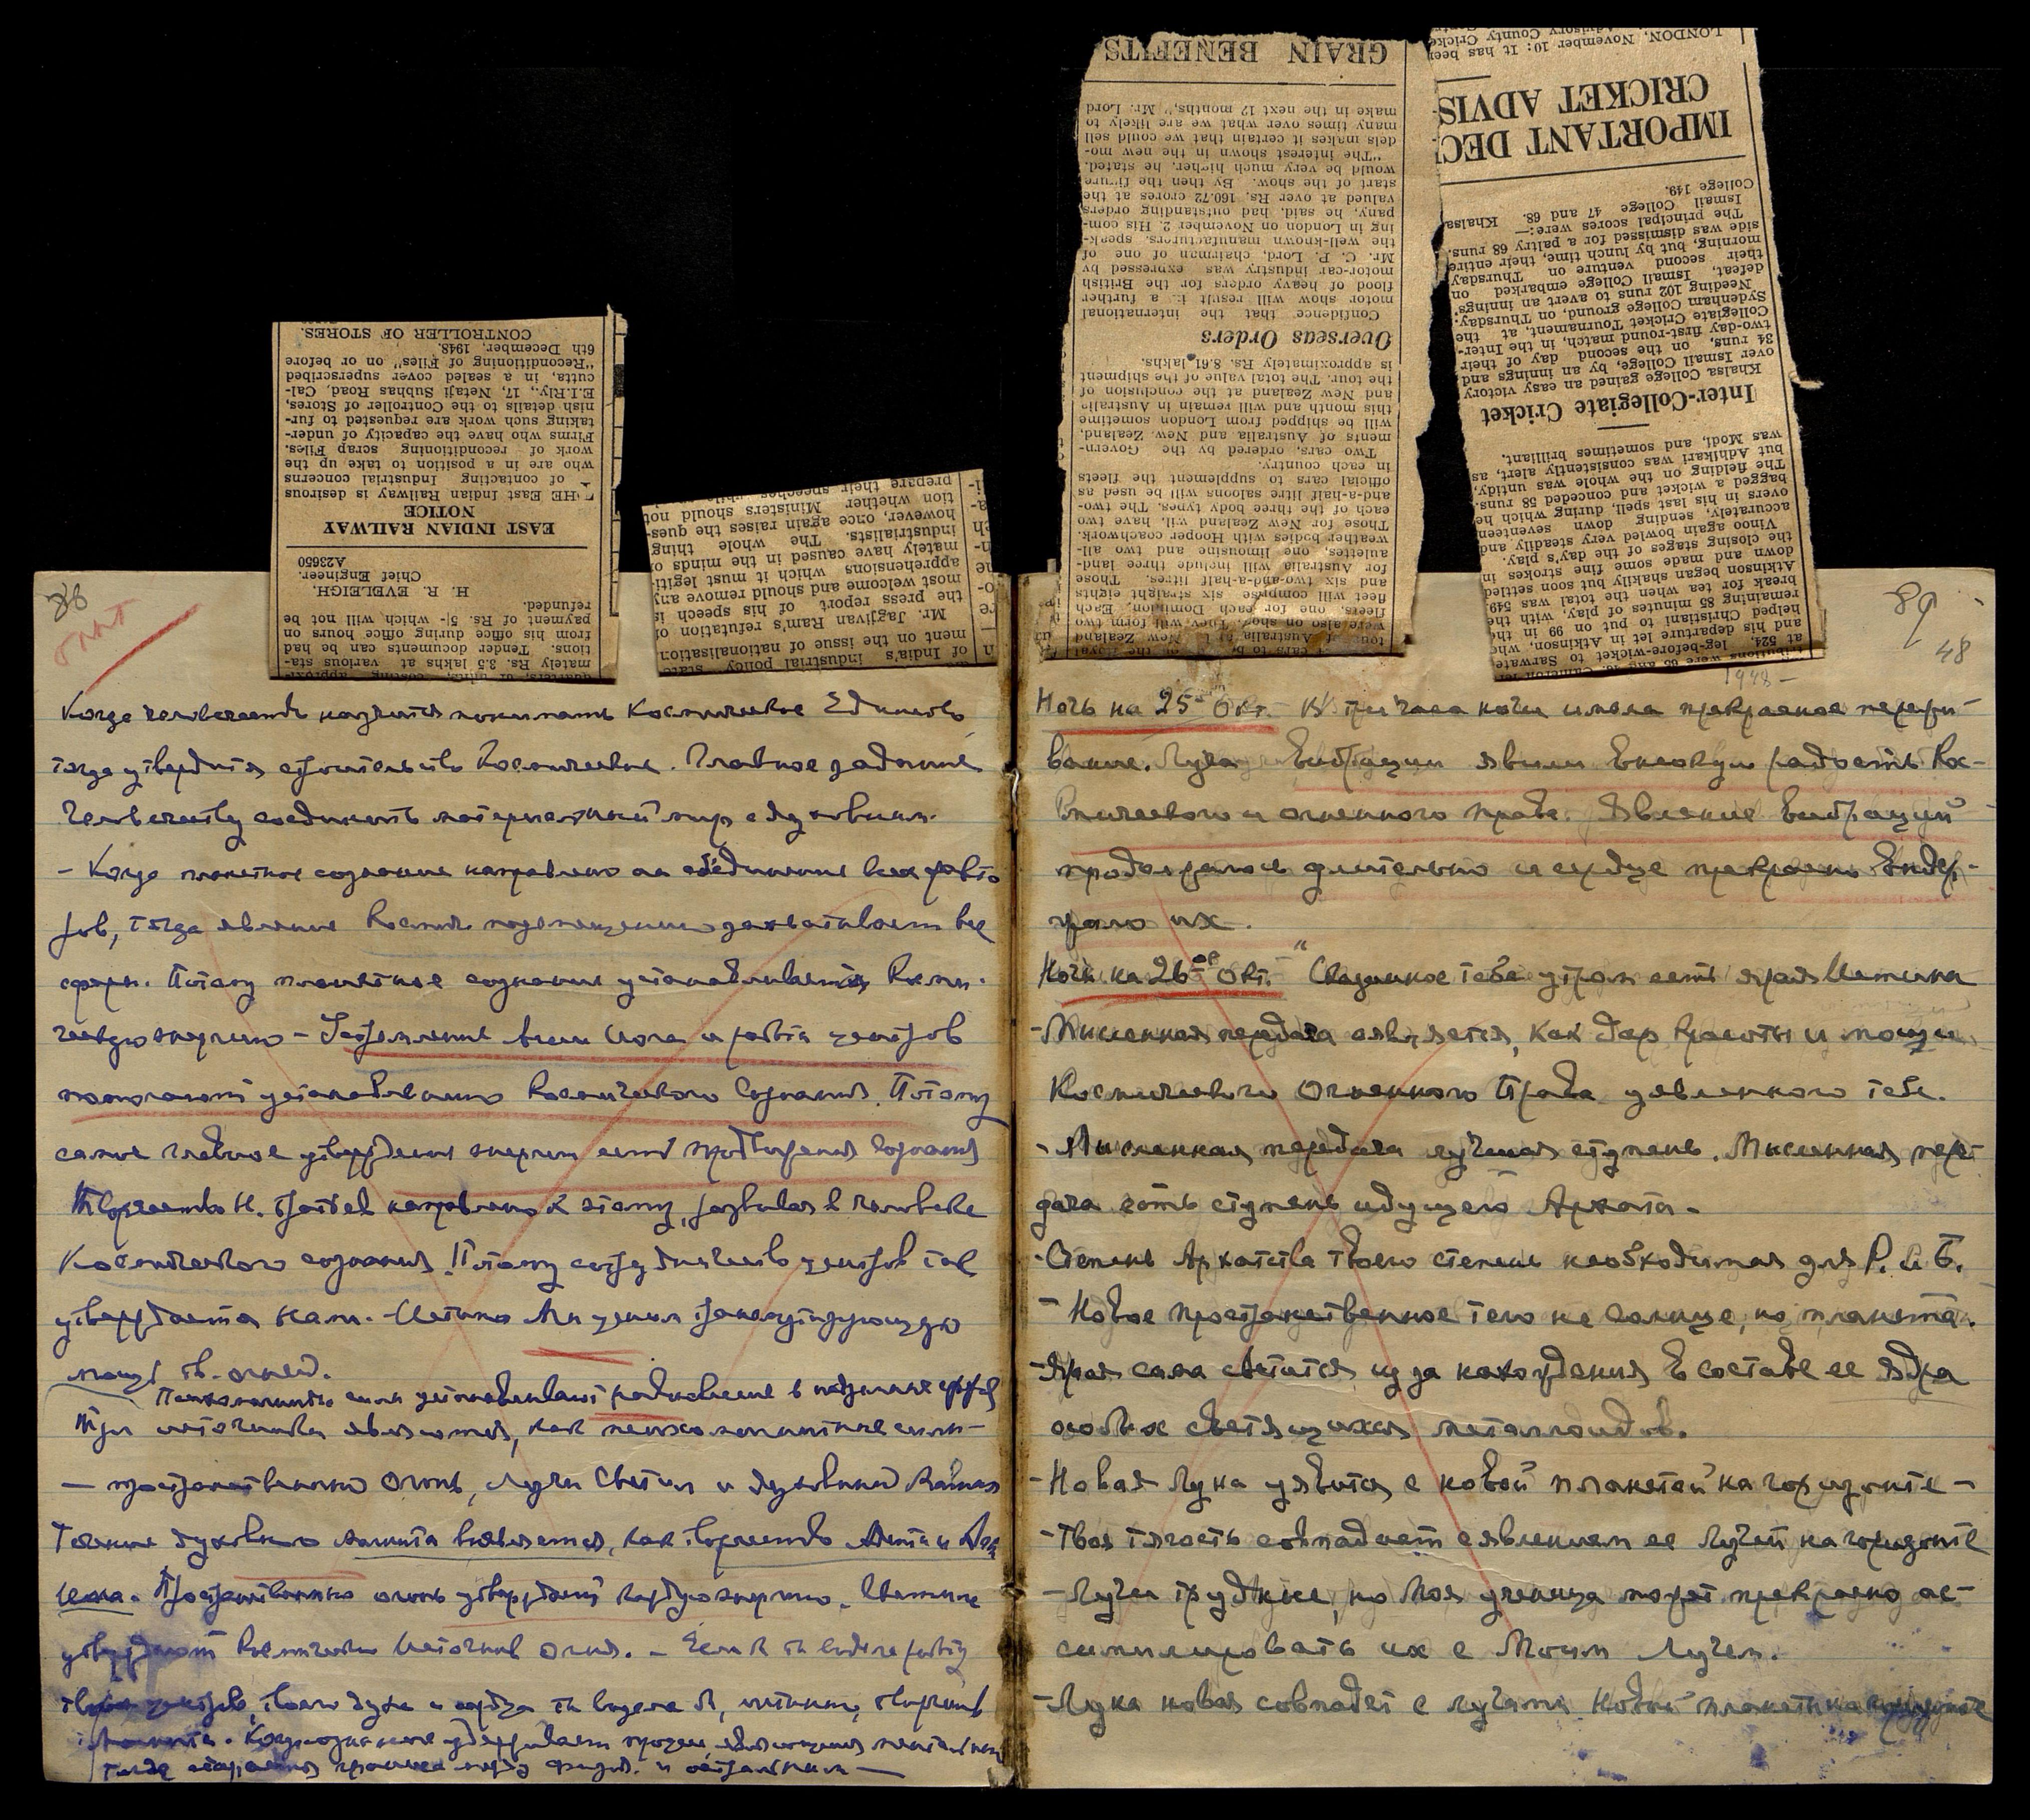 CONTROLLER OF STORES.
6th December, 1948.
"Reconditioning of Files" on or before
cutta, in a sealed cover superscribed
E.I.Rly., 17, Netaji Subhas Road, Cal-
nish details to the Controller of Stores,
taking such work are requested to fur-
Firms who have the capacity of under-
work of reconditioning scrap Files.
who are in a position to take up the
of contacting Industrial concerns
THE East Indian Railway is desirous
NOTICE
EAST INDIAN RAILWAY
A23650
Chief Engineer.
H. R. EVELEIGH,
refunded.
payment of Rs. 5|- which will not be
from his office during office hours on
tions. Tender documents can be had
mately Rs. 3.5 lakhs at various sta-
prepare their speeches
tion whether Ministers should not
however, once again raises the ques-
industrialists. The whole thing
mately have caused in the minds of
apprehensions which it must legiti-
most welcome and should remove any
the press report of his speech is
Mr. Jagjivan Ram's refutation of
ment on the issue of nationalisation
of India's industrial policy
GRAIN BENEFITS
make in the next 12 months," Mr. Lord
many times over what we are likely to
dels makes it certain that we could sell
"The interest shown in the new mo-
would be very much higher, he stated.
start of the show. By then the figure
valued at over Rs. 160.72 crores at the
pany, he said, had outstanding orders
ing in London on November 2. His com-
the well-known manufacturers, speak-
Mr. C. P. Lord, chairman of one of
motor-car industry was expressed by
flood of heavy orders for the British
motor show will result in a further
Confidence that the international
Overseas Orders
is approximately Rs. 8.61 lakhs.
the tour. The total value of the shipment
and New Zealand at the conclusion of
this month and will remain in Australia
will be shipped from London sometime
ments of Australia and New Zealand,
Two cars, ordered by the Govern-
in each country.
official cars to supplement the fleets
and-a-half litre saloons will be used as
each of the three body types. The two-
Those for New Zealand will have two
weather bodies with Hooper coachwork.
aulettes, one limousine and two all-
for Australia will include three land-
and six two-and-a-half litres. Those
fleet will comprise six straight eights
fleets, one for each Dominion. Each
were also on show. They will form two
LONDON, November 10: It has been
IMPORTANT DEC
CRICKET ADVIS
College 149.
Ismail College 47 and 68. Khalsa
The principal scores were:—
side was dismissed for a paltry 68 runs.
morning, but by lunch time, their entire
their second venture on Thursday
defeat, Ismail College embarked on
Needing 102 runs to avert an innings'
Sydenham College ground, on Thursday.
Collegiate Cricket Tournament, at the
two-day first-round match, in the Inter-
34 runs, on the second day of their
over Ismail College, by an innings and
Khalsa College gained an easy victory
Inter-Collegiate Cricket
was Modi, and sometimes brilliant.
but Adhikari was consistently alert, as
The fielding on the whole was untidy,
bagged a wicket and conceded 58 runs.
overs in his last spell, during which he
accurately, sending down seventeen
Vinoo again bowled very steadily and
the closing stages of the day's play.
down and made some fine strokes in
Atkinson began shakily but soon settled
break for tea when the total was 549.
remaining 85 minutes of play, with the
helped Christiani to put on 99 in the
and his departure let in Atkinson, who
at 524, leg-before-wicket to Sarwate
88
Когда человечество научится понимать Космическое Единство
тогда утвердится строительство Космическое. Главное задание
Человечеству соединить материальный мир с духовным.
- Когда планетное сознание направлено на объединение всех факто
ров, тогда явление
сферы. Потому планетное сознание устанавливается Косми-
ческою энергиею - Устремление
помогают установлению Космического Сознания. Потому
самое главное утверждение энергии есть претворение сознания
Творчество Н. Братьев направлено к этому, развивая в человеке
Космического сознания. Потому сотрудничество центров так
утверждается нами. - Истинно Мы ценим трансмутирующую
мощь тв. огней.
Три источника являются, как
— пространственный Огонь, Лучи Светил и духовный Магнит
Течение духовного магнита является, как творчество
Пространственный огонь утверждает
утверждают Космический Источник Огня. - Если б ты видела работу
твоих центров, твоего духа и сердца ты видела б, истинно, творчество
Магнита.
89
48
1948 -
Ночь на 25ое Окт. В три часа ночи имела прекрасное пережи-
вание. Луча Вибрации явили Высокую радость Кос-
мического и огненного права. Явление Вибраций
продолжалось длительно и сердце прекрасно выдер-
жало их.
Ночь на 26ое Окт. "Сказанное тебе утром есть ярая Истина
- Мысленная передача явится, как дар Красоты и мощи
Космического Огненного Права уявленного тебе.
- Мысленная передача лучшая ступень. Мысленная пере
дача есть ступень идущего Архата.
- Степень Архатства твоего степень необходимая для Р. и Б.
- Новое пространственное тело не Солнце, но планета.
- Ярая сама светится из за нахождения в составе ее ядра
особых светящихся металлоидов.
- Новая Луна уявится с новой планетой на горизонте -
- Твоя тягость совпадает с явлением ее Лучей на горизонте
- Лучи трудные, но Моя ученица может прекрасно ас-
симилировать их с Моим Лучем.
- Луна новая совпадет с лучами Новой планеты на горизонте